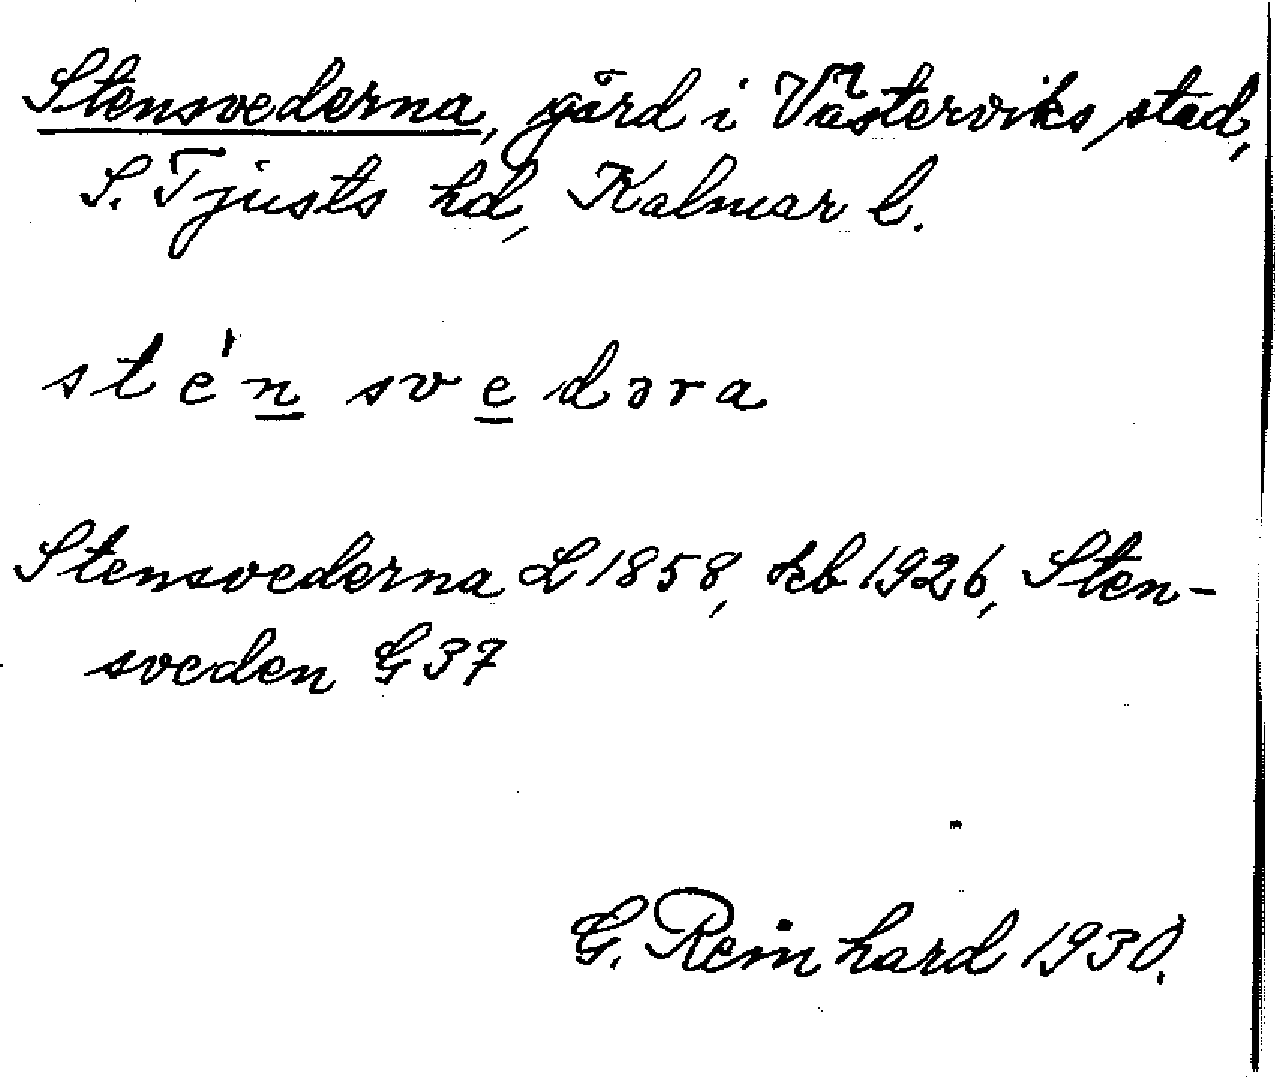 Stensvederna, gård i Västerviks stad,
S. Tjusts hd, Kalmar l.
sté'n svedəra
Stensvederna L 1858, kb 1926, Sten-
sveden G 37
G. Reinhard 1930.